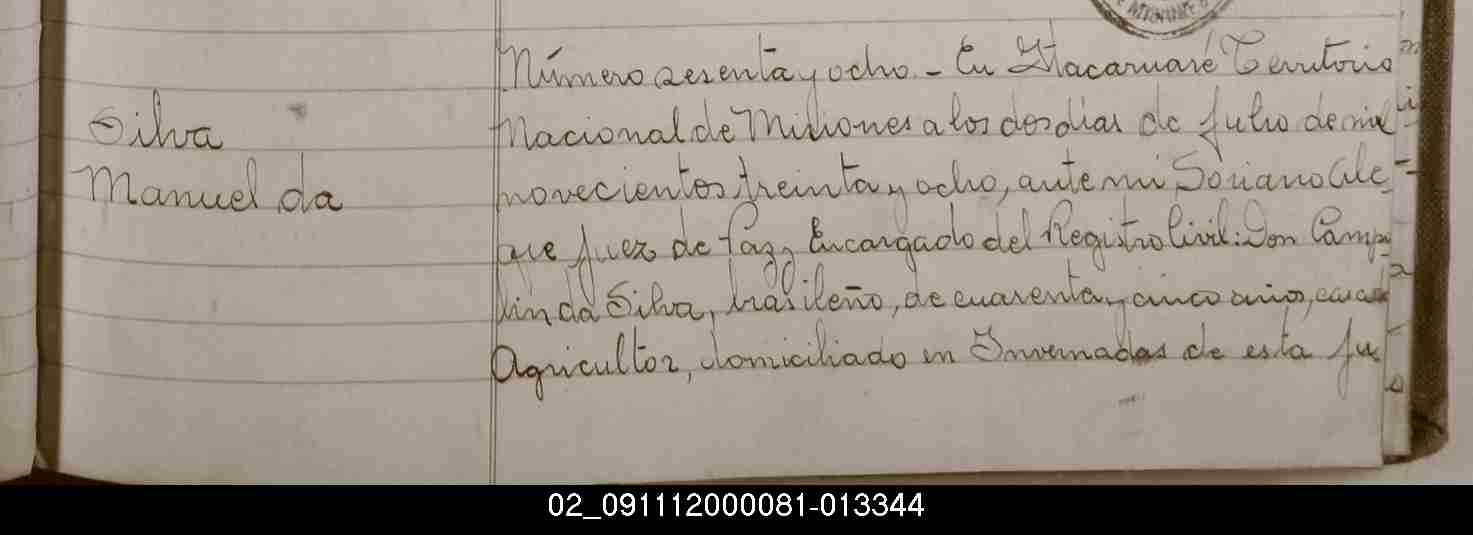 Número sesenta y ocho - En Itacaruaré Territorio
Silva
Nacional de Misiones a los dos dias de Julio de mil
Manuel da
novecientos treinta y ocho, ante mi Soriano Ale
que Juez de Paz, Encargado del Registro Civil: Don Camp
lin da Silva, brasileño, de cuarenta y cinco años,
Agricultor, domiciliado en Invernadas de esta Ju
02_091112000081-013344